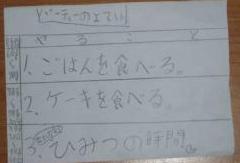 パーティーのよてい
やること
1. ごはんを食べる。
2. ケーキを食べる。
3. ひみつの時間